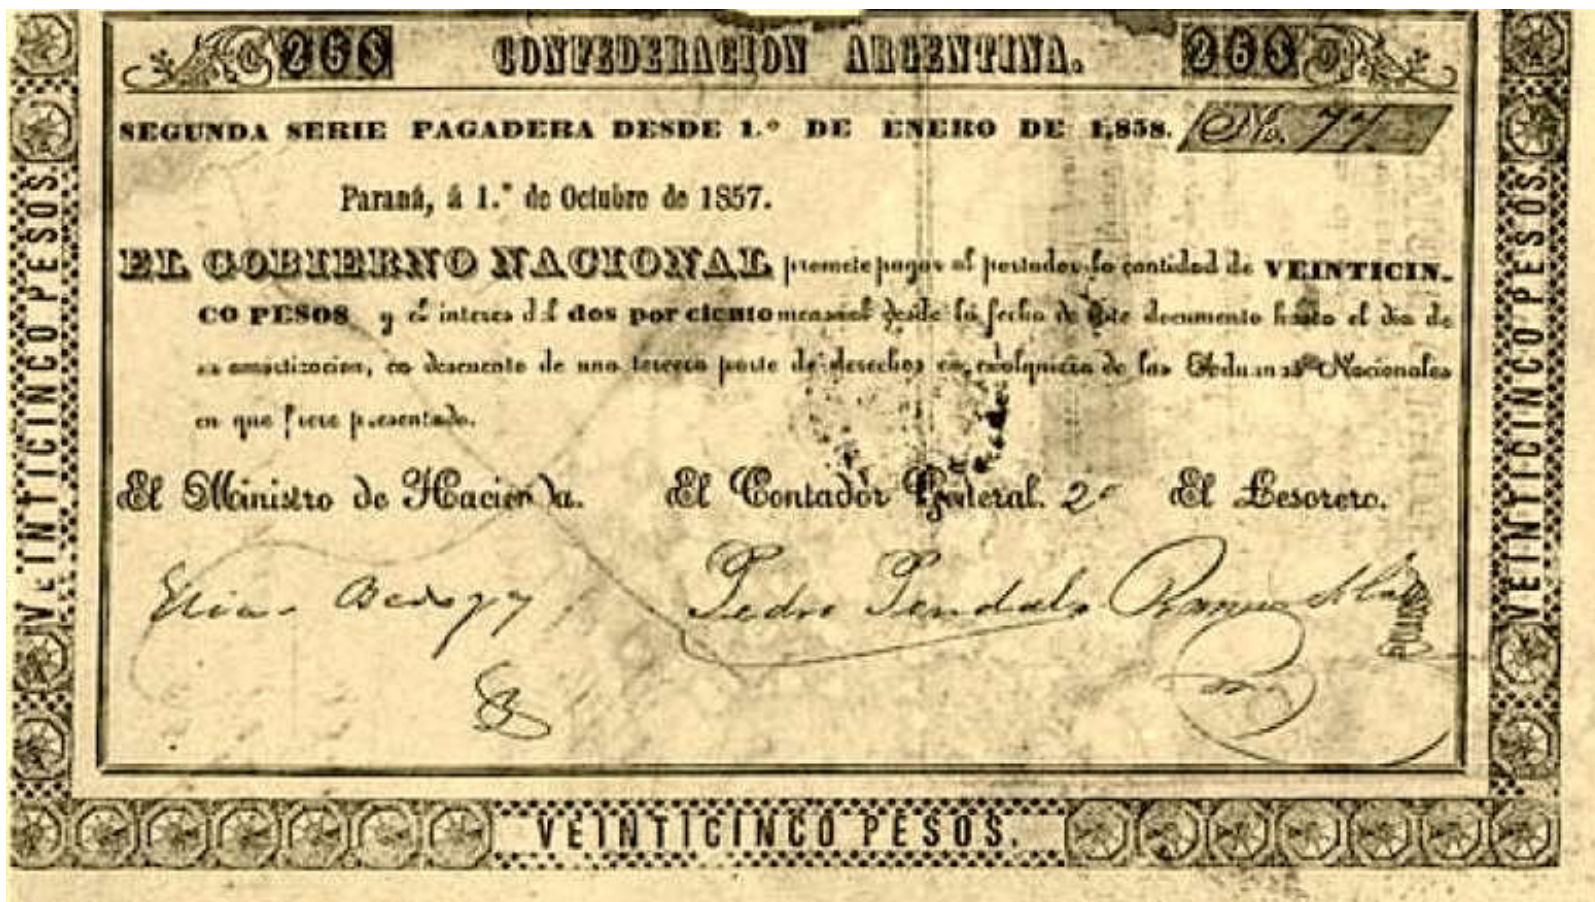 25$ CONFEDERACION ARGENTINA. 25$
SEGUNDA SERIE PAGADERA DESDE 1.º DE ENERO DE 1,858. No. 77
Paraná, á 1.º de Octubre de 1857.
EL GOBIERNO NACIONAL promete pagar al portador la cantidad de VEINTICIN-
CO PESOS y el interes del dos por ciento mensual desde la fecha de este documento hasta el dia de
su amortizacion, en descuento de una tercera parte de derechos en cualquiera de las Aduanas Nacionales
en que fuere presentado.
El Ministro de Hacienda. El Contador General. 2º El Tesorero.
Elias Bedoya Pedro
VEINTICINCO PESOS
VEINTICINCO PESOS.
VEINTICINCO PESOS.